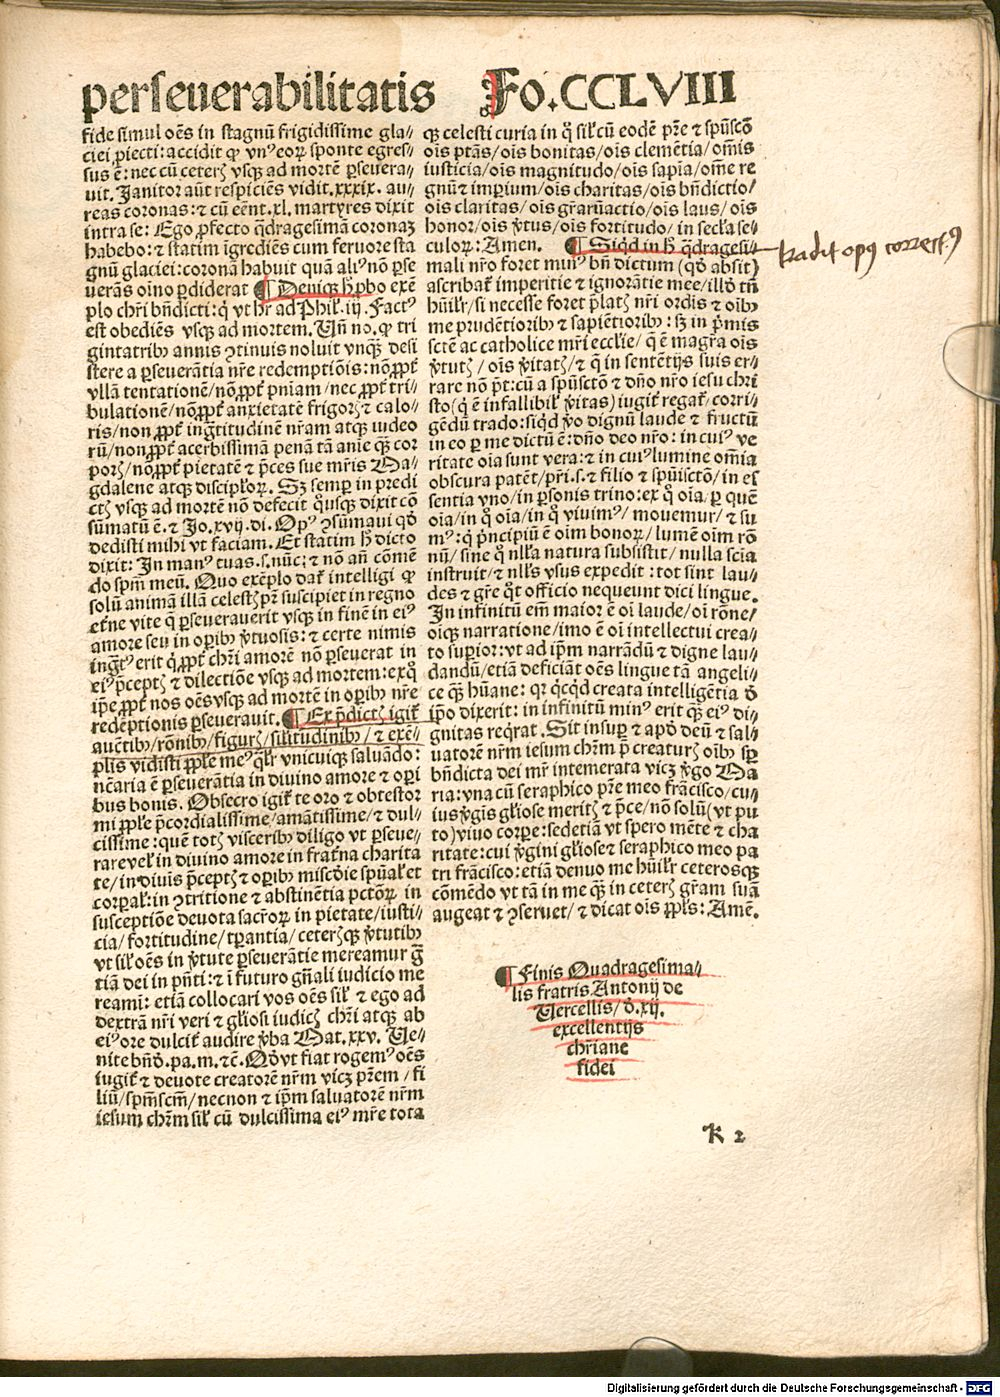 perseuerabilitatis Fo.CCLVIII
fide simul oēs in stagnū frigidissime gla//
ciei ꝓiecti: accidit ꝙ vn⁹ eoꝝ sponte egres//
sus ē: nec cū ceteꝝ vsqꝫ ad mortē ꝑseuera//
uit. Janitor aūt respiciēs vidit .xxxix. au//
reas coronas: ⁊ cū eēnt .xl. martyres dixit
intra se: Ego ꝓfecto q̄dragesimā coronaꝫ
habebo: ⁊ statim īgrediēs cum feruore sta
gnū glaciei: coronā habuit quā ali⁹ nō ꝑse
uerās oīno ꝑdiderat ¶ Deniqꝫ ħ ꝓbo exē
plo chr̄i bn̄dicti: q̇ vt hr̄ ad Phil. iij. Fact⁹
est obediēs vsqꝫ ad mortem. Vn̄ no. ꝙ tri
gintatribꝰ annis ꝯtinuis noluit vnqꝫ desi
stere a ꝑseuerātia nr̄e redemptiōis: nō ꝓpt̄
vllā tentationē/ nō ꝓpt̄ pn̄iam/ nec ꝓpt̄ tri//
bulationē/ nō ꝓpt̄ anxietatē frigoꝝ ⁊ calo//
ris/ non ꝓpt̄ ingr̄titudinē nr̄am atqꝫ iudeo
rū/ non ꝓpt̄ acerbissimā penā tā anie qꝫ cor
poꝝ/ nō ꝓpt̄ pietatē ⁊ p̄ces sue mr̄is Ma//
gdalene atqꝫ discipl̄oꝝ. Sꝫ semꝑ in predi
ctꝭ vsqꝫ ad mortē nō defecit q̇usqꝫ dixit cō
sūmatū ē. ⁊ Jo. xvij. di. Op⁹ ꝯsūmaui qḋ
dedisti mihi vt faciam. Et statim ħ dicto
dixit: In man⁹ tuas .s. nūc: ⁊ nō añ cōmē
do spm̄ meū. Quo exēplo dat̄ intelligi ꝙ
solū animā illā celestꝭ pr̄ suscipiet in regno
et̄ne vite q̄ ꝑseuerauerit vsqꝫ in finē in ei⁹
amore seu in oꝑibꝰ v̄tuosis: ⁊ certe nimis
ingr̄t⁹ erit q̇ ꝓpt̄ chr̄i amorē nō ꝑseuerat in
ei⁹ p̄ceptꝭ ⁊ dilectiōe vsqꝫ ad mortem: ex q̊
ip̄e ꝓpt̄ nos oēs vsqꝫ ad mortē in oꝑibꝰ nr̄e
redēptionis ꝑseuerauit. ¶ Ex p̄dictꝭ igit̄
auc̄tibꝰ/ rōnibꝰ/ figurꝭ/ sil̄itudinibꝰ/ ⁊ exē//
plis vidisti ppl̄e me⁹ q̄lr̄ vnicuiqꝫ saluādo:
nc̄aria ē ꝑseuerātia in diuino amore ⁊ oꝑi
bus bonis. Obsecro igit̄ te oro ⁊ obtestor
mi ppl̄e p̄cordialissime/ amātissime/ ⁊ dul//
cissime: quē totꝭ visceribꝰ diligo vt ꝑseue//
rare vel̄ in diuino amore in frat̄na charita
te/ in diuīs p̄ceptꝭ ⁊ oꝑibꝰ misc̄die spūal̄ et
corꝑal̄: in ꝯtritione ⁊ abstinētia pctōꝝ in
susceptiōe deuota sacr̄oꝝ in pietate/ iusti//
cia/ fortitudine/ tꝑantia/ ceterꝭqꝫ v̄tutibꝰ
vt sil̄ oēs in v̄tute ꝑseuerātie mereamur gr̄
tiā dei in pn̄ti: ⁊ ī futuro gn̄ali iudicio me
reamī: etiā collocari vos oēs sil̄ ⁊ ego ad
dextrā nr̄i veri ⁊ gl̄iosi iudicꝭ chr̄i atqꝫ ab
ei⁹ ore dulcit̄ audire v̄ba Mat. xxv. Ve//
nite bn̄ḋ. pa. m. ⁊c̄. Qḋ vt fiat rogem⁹ oēs
iugit̄ ⁊ deuote creatorē nr̄m vicꝫ pr̄em/ fi
liū/ spm̄scm̄/ necnon ⁊ ip̄m saluatorē nr̄m
iesum chr̄m sil̄ cū dulcissima ei⁹ mr̄e tota
qꝫ celesti curia in q̊ sil̄ cū eodē pr̄e ⁊ spūsctō
oīs ptās/ oīs bonitas/ oīs clemētia/ om̄is
iusticia/ oīs magnitudo/ oīs sapīa/ om̄e re
gnū ⁊ imperiū/ oīs charitas/ oīs bn̄dictio/
oīs claritas/ oīs gr̄arūactio/ oīs laus/ oīs
honor/ oīs v̄tus/ oīs fortitudo/ in secl̄a se//
culoꝝ: Amen. ¶ Siqḋ in ħ q̄dragesi//
mali nr̄o foret min⁹ bn̄ dictum (qḋ absit)
ascribat̄ imperitie ⁊ ignorātie mee/ illḋ tn̄
hūilr̄/ si necesse foret p̄latꝭ nr̄i ordīs ⁊ oībꝰ
me prudētioribꝰ ⁊ sapiētioribꝰ: sꝫ in p̄mis
scte ac catholice mr̄i eccl̄ie/ q̄ ē magr̄a oīs
v̄tutꝭ/ oīs v̄itatꝭ/ ⁊ q̄ in sentētijs suis er//
rare nō pt̄: cū a spūsctō ⁊ dn̄o nr̄o iesu chri
sto (q̇ ē infallibil̄ v̄itas) iugit̄ regat̄/ corri//
gēdū trado: siqḋ v̄o dignū laude ⁊ fructū
in eo ꝑ me dictū ē: dn̄o deo nr̄o: in cui⁹ ve
ritate oīa sunt vera: ⁊ in cui⁹ lumine om̄ia
obscura patēt/ pr̄i .s. ⁊ filio ⁊ spūisctō/ in es
sentia vno/ in ꝑsonis trino: ex q̊ oīa/ ꝑ quē
oīa/ in q̊ oīa/ in q̊ viuim⁹/ mouemur/ ⁊ su
m⁹: q̇ p̄ncipiū ē oīm bonoꝝ/ lumē oīm rō
nū/ sine q̊ nl̄la natura subsistit/ nulla scīa
instruit/ ⁊ nl̄ls vsus expedit: tot sint lau//
des ⁊ gr̄e q̊t officio nequeunt dici lingue.
In infinitū em̄ maior ē oī laude/ oī rōne/
oīqꝫ narratione/ imo ē oī intellectui crea//
to suꝑior: vt ad ip̄m narrādū ⁊ digne lau//
dandū/ etiā deficiāt oēs lingue tā angeli//
ce qꝫ hūane: qꝛ q̇cq̇d creata intelligētia ḋ
ip̄o dixerit: in infinitū min⁹ erit qꝫ ei⁹ di//
gnitas req̇rat. Sit insuꝑ ⁊ apḋ deū ⁊ sal//
uatorē nr̄m iesum chr̄m p̄ creaturꝭ oībꝰ sꝑ
bn̄dicta dei mr̄ intemerata vicꝫ v̄go Ma
ria: vna cū seraphico pr̄e meo frācisco/ cu//
ius v̄gīs gl̄iose meritꝭ ⁊ p̄ce/ nō solū (vt pu
to) viuo corꝑe: sed etiā vt spero mēte ⁊ cha
ritate: cui v̄gini gl̄iose ⁊ seraphico meo pa
tri frācisco: etiā denuo me hūilr̄ ceterosqꝫ
cōmēdo vt tā in me qꝫ in ceterꝭ gr̄am suā
augeat ⁊ ꝯseruet/ ⁊ dicat oīs ppl̄s: Amē.
tradit opꝰ
¶ Finis Quadragesima//
lis fratris Antonij de
Vercellis/ ḋ .xij.
excellentijs
chr̄iane
fidei
k 2
Digitalisierung gefördert durch die Deutsche Forschungsgemeinschaft - DFG